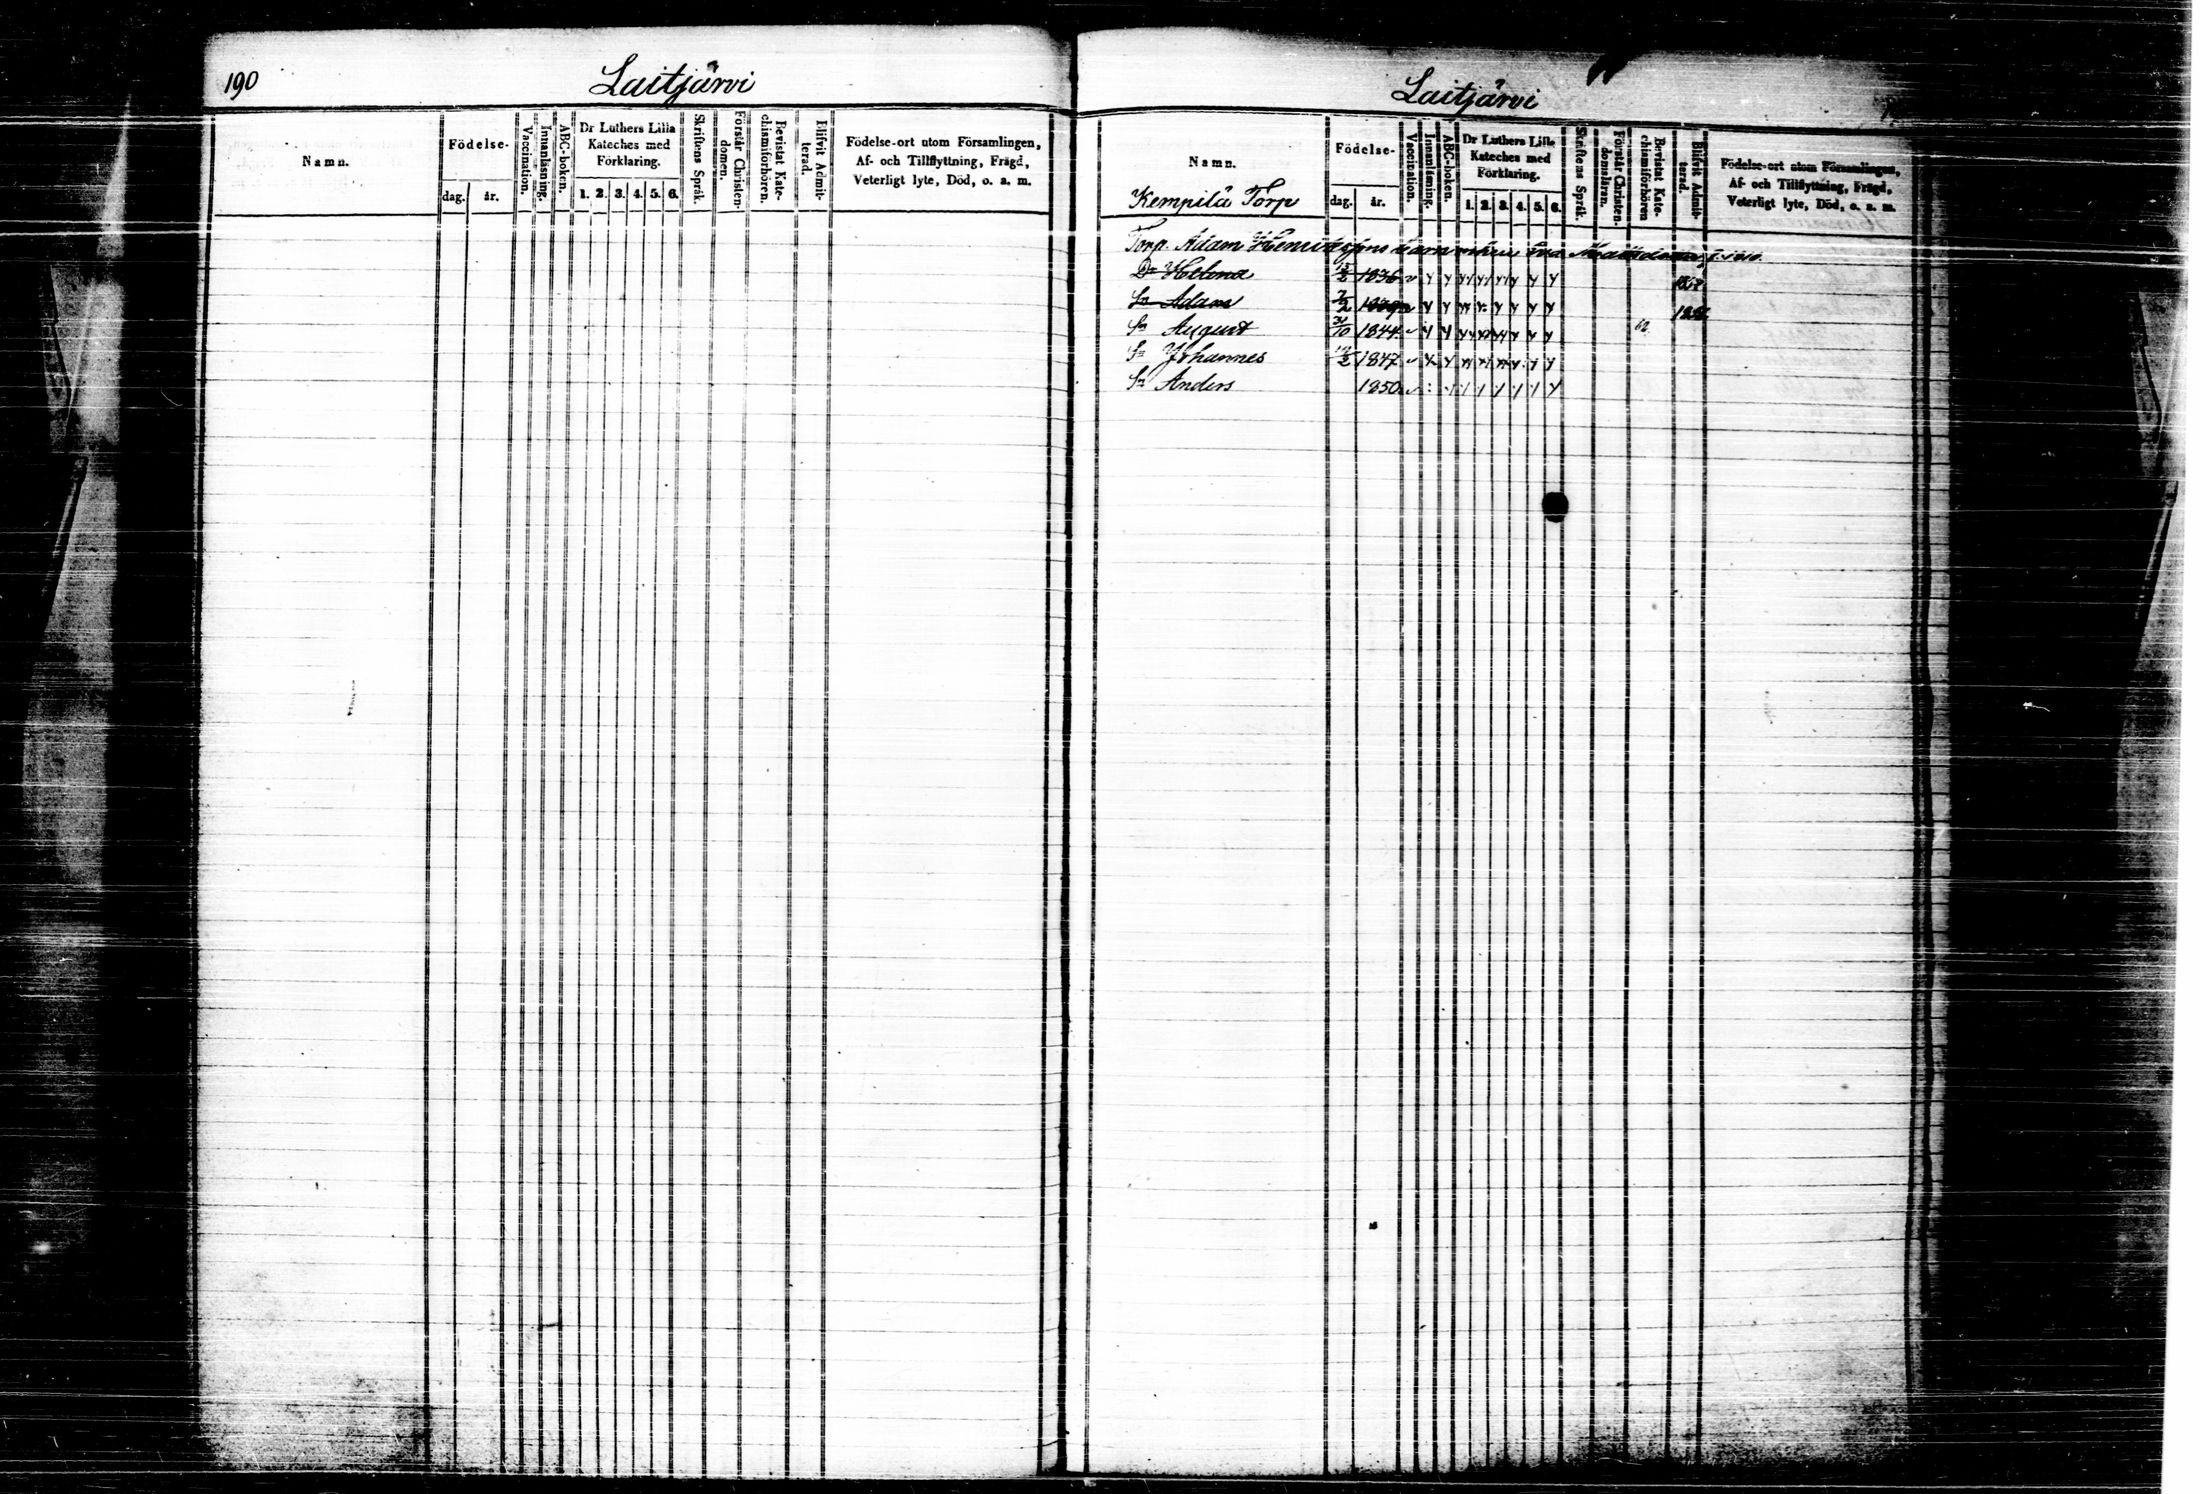 190
Laitjärvi
Namn.
Födelse-
dag. år.
Vaccination.
Innanläsning.
ABC-boken.
Dr Luthers Lilla
Kateches med
Förklaring.
1. 2. 3. 4. 5. 6.
Skriftens Språk.
Förstår Christen-
domen.
Bevistat Kate-
chismiförhören.
Blifvit Admit-
terad.
Födelse-ort utom Församlingen,
Af- och Tillflyttning, Frägd,
Veterligt lyte, Död, o. a. m.
Laitjärvi
Namn.
Kempilä Torp
Födelse-
dag. år.
Vaccination.
Innanläsning.
ABC-boken.
Dr Luthers Lilla
Kateches med
Förklaring.
1. 2. 3. 4. 5. 6.
Skriftens Språk.
Förstår Christen-
domsläran.
Bevistat Kate-
chismiförhören
Blifvit Admit-
terad.
Födelse-ort utom Församlingen,
Af- och Tillflyttning, Frägd,
Veterligt lyte, Död, o. a. m.
Torp. Adam barn
Dr 1836
Sn Adam
Sn August 31/10 1844 62
Sn Johannes 1847
Sn Anders 1850